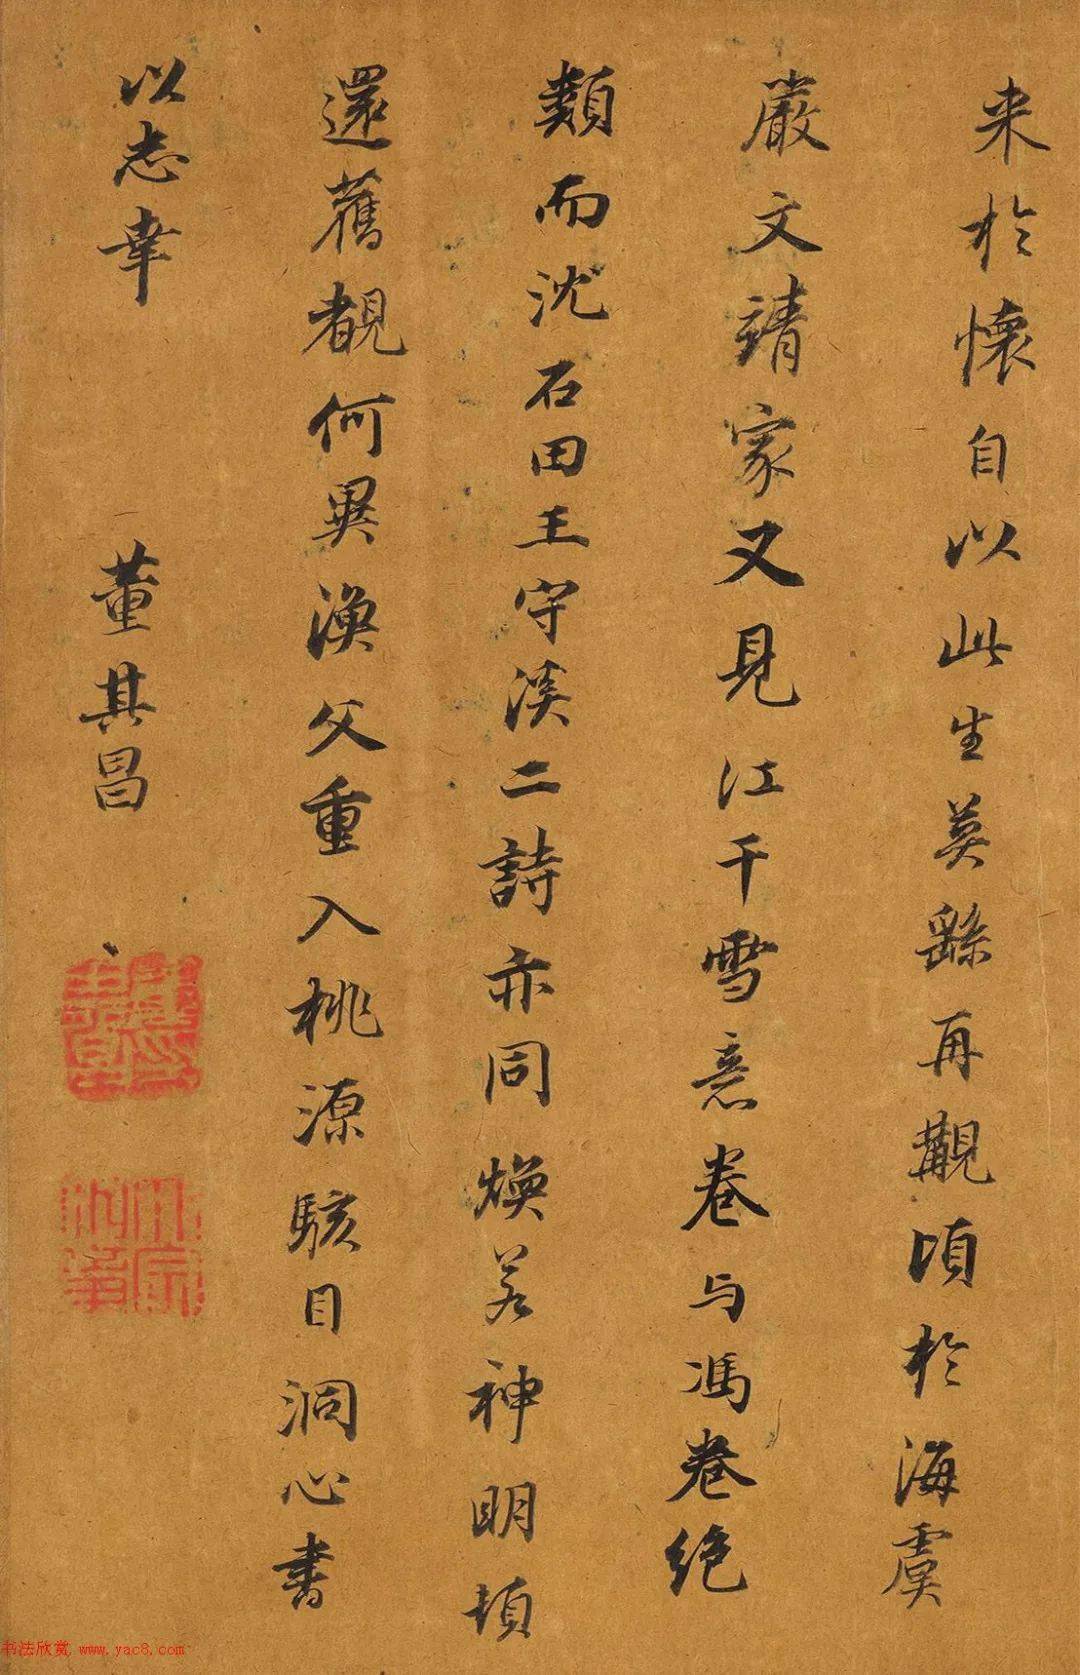 来於懷自以此生莫繇再觀頃於海虞
嚴文靖家又見江干雪意卷与馮卷絕
類而沈石田王守溪二詩亦同煥若神明頓
還舊觀何異漁父重入桃源駭目洞心書
以志幸
董其昌
书法欣赏 www.yac8.com